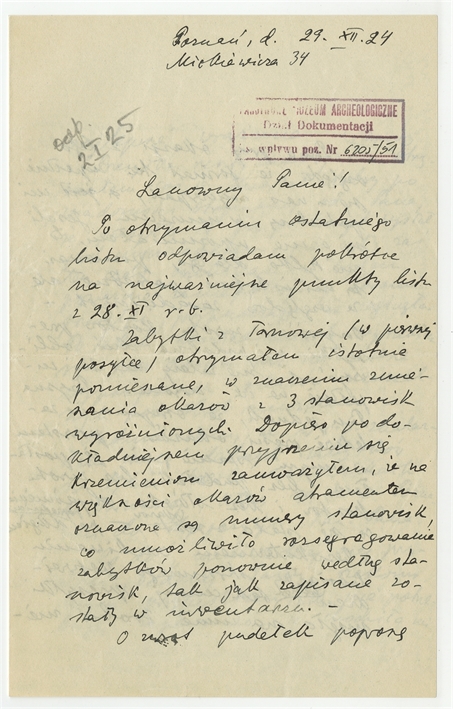 Poznań, d. 29. XII. 24
Mickiewicza 34
odp.
2 I 25
PAŃSTWOWE MUZEUM ARCHEOLOGICZNE
Dział Dokumentacji
wpływu poz. Nr 6205/51
Szanowny Panie!
Po otrzymaniu ostatniego
listu odpowiadam pokrótce
na najważniejsze punkty listu
z 28. XI r. b.
Zabytki z Tarnowej (w pierwszej
posyłce) otrzymałem istotnie
pomieszane, w znaczeniu zmie-
szania okazów z 3 stanowisk
wyróżnionych. Dopiero po do-
kładniejszem przyjrzeniu się
krzemieniom zauważyłem, że na
większości okazów atramentem
oznaczone są numery stanowisk,
co umożliwiło rozsegregowanie
zabytków ponownie według sta-
nowisk, tak jak zapisane zo-
stały w inwentarzu. –
O pudełek poproszę